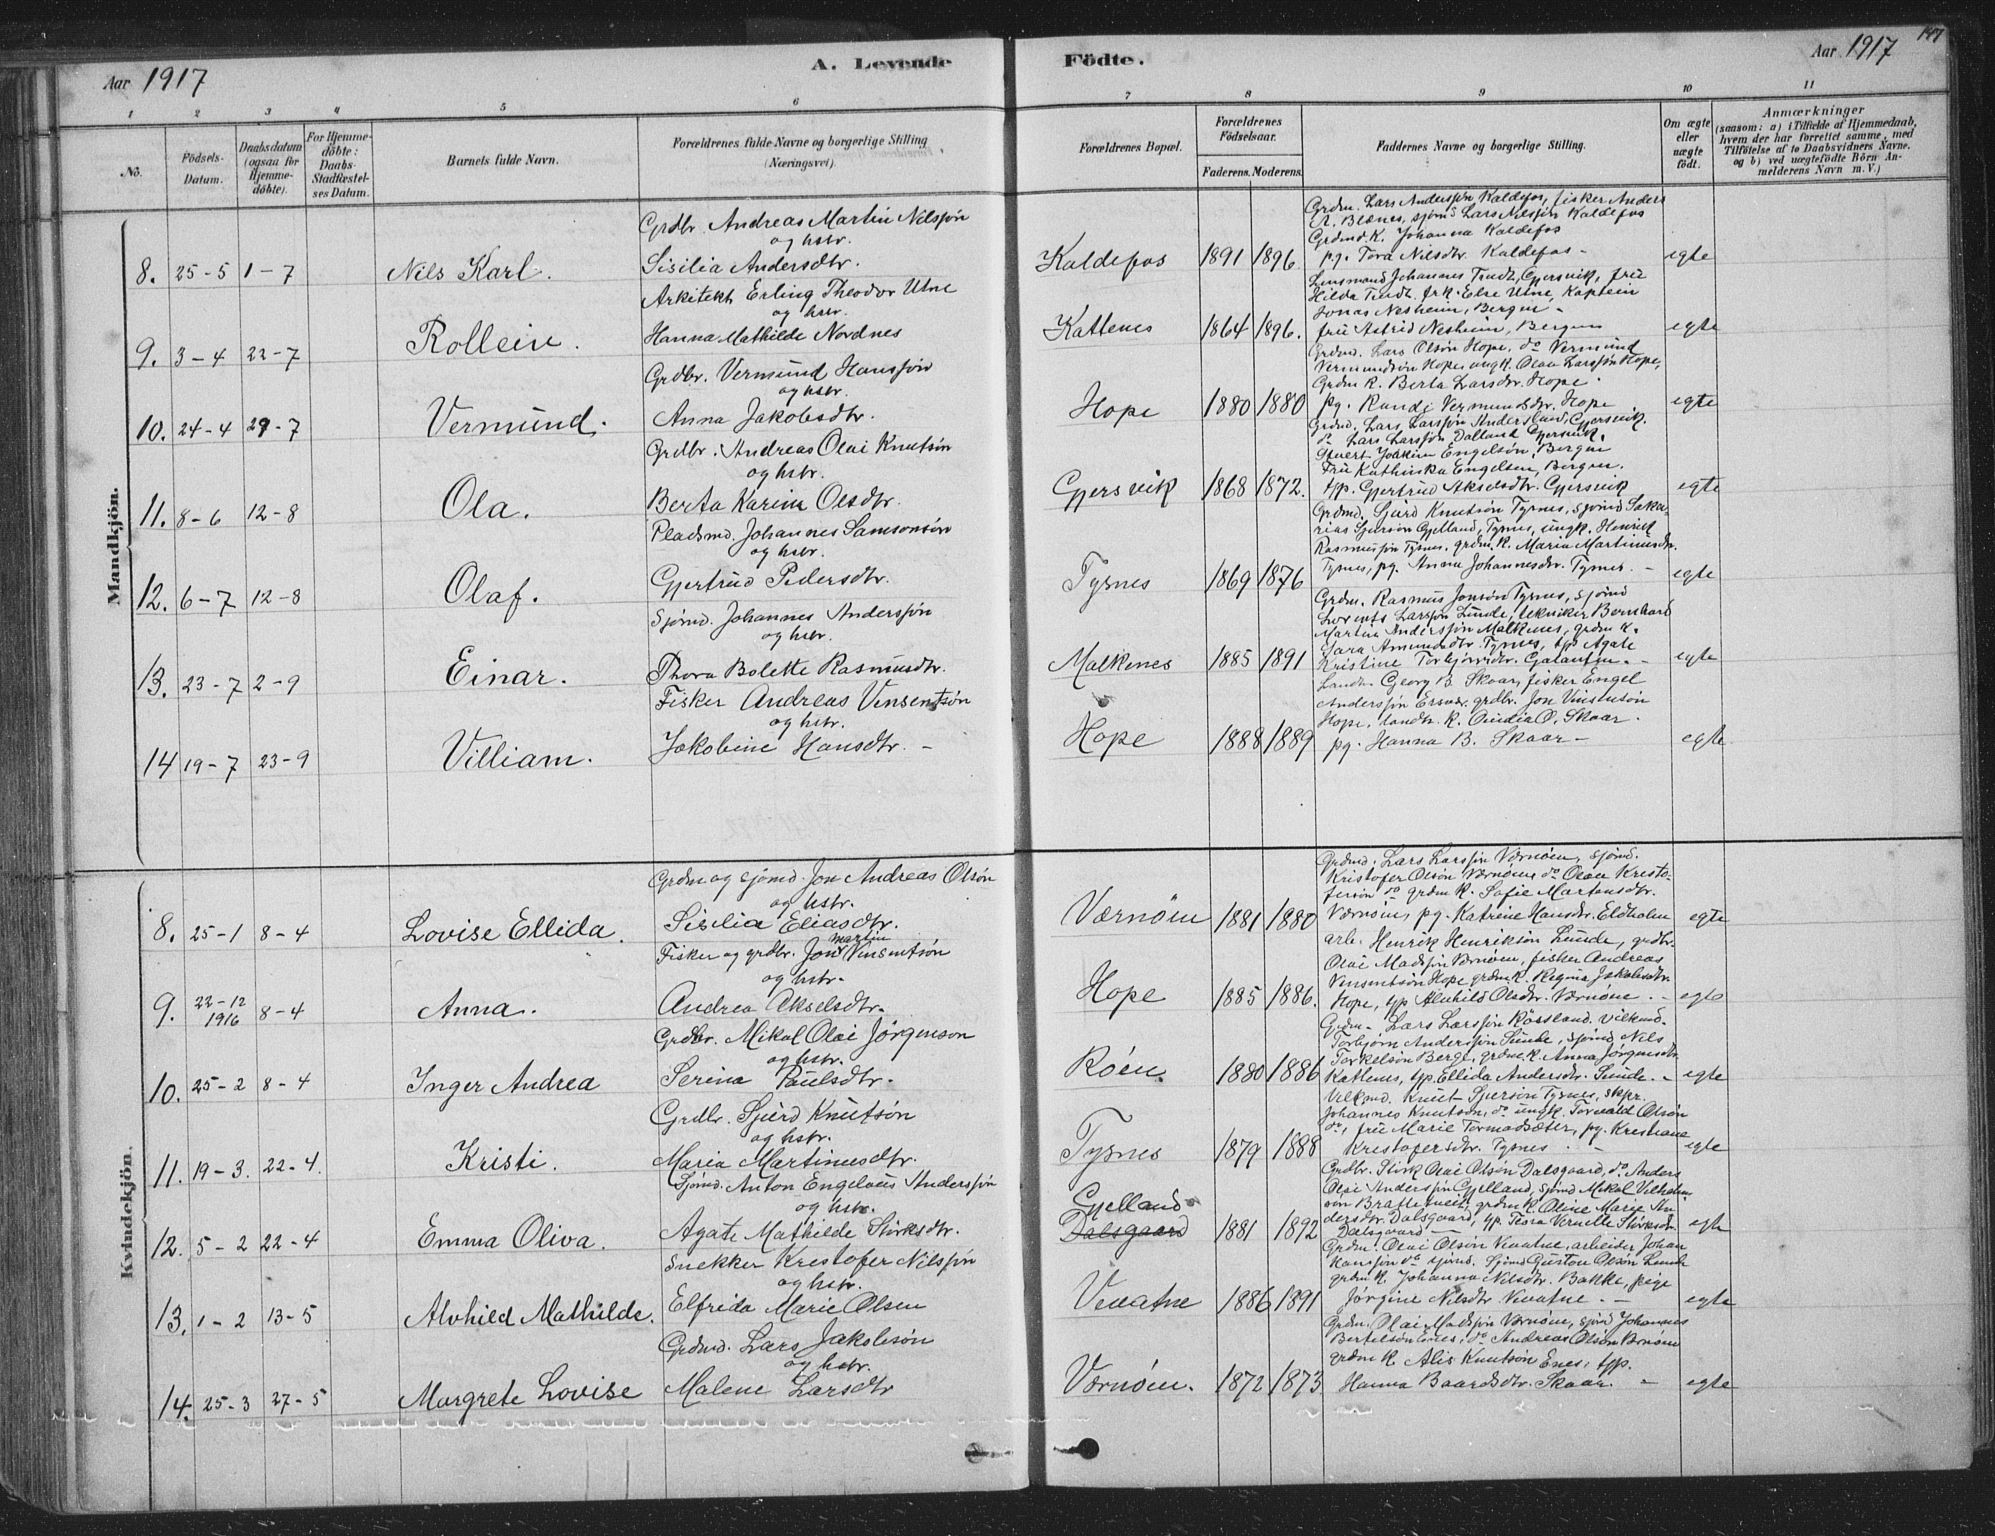 Aar 1917
A. Levende
Födte.
Aar 1917
147
1 2 3 4 5 6 7 8 9 10 11
No.
Födsels-Datum.
Daabsdatum (ogsaa for Hjemme-döbte).
For Hjemme-döbte: Daabs-Stadfæstel-ses Datum.
Barnets fulde Navn.
Forældrenes fulde Navne og borgerlige Stilling (Næringsvei).
Forældrenes Bopæl.
Forældrenes Födselsaar.
Faderens. Moderens.
Faddernes Navne og borgerlige Stilling.
Om ægte eller uægte födt.
Anmærkninger
(saasom: a) i Tilfælde af Hjemmedaab, hvem der har forrettet samme, med Tilföielse af to Daabsvidners Navne. og b) ved uægtefödte Börn An-melderens Navn m. V.)
Mandkjön.
8. 25-5 1-7 Nils Karl.
Grdbr. Andreas Martin Nilssøn
og hstr.
Sisilia Andersdtr.
Kaldefos 1891 1896
Grdm. Lars Anderssøn Kaldefos, fisker Anders
A. Blænes, sjømd Lars Nilssøn Kaldefos
Grdmd. K. Johanna Kaldefos
pg. Tora Nilsdtr. Kaldefos -
egte
9. 3-4 22-7 Rollein.
Arkitekt Erling Theodor Utne
og hstr.
Hanna Mathilde Nordnes
Katlenes 1864 1896.
Lensmand Johannes Tvedt, Gjersvik, frue
Hilda Tvedt. frk. Else Utne, Kaptein
Jonas Nesheim, Bergen -
frú Astrid Nesheim, Bergen
egte
10. 24-4 29-7 Vermund.
Grdbr. Vermund Hanssøn
og hstr.
Anna Jakobsdtr.
Hope 1880 1880
Grdmd. Lars Olsøn Hope, do Vermund
Vermundsøn Hope, ungk. Olai Larssøn Hope,
Grdm K. Berta Larsdtr. Hope
pg. Randi Vermundsdtr. Hope
egte
11. 8-6 12-8 Ola.
Grdbr. Andreas Olai Knutsøn
og hstr.
Berta Karina Olsdtr.
Gjersvik 1868 1872.
Grdmd. Lars Larssøn Andersland, Gjersvik.
do Lars Larssøn Dalland Gjersvik.
Stuert Joakim Engelsøn, Bergen
Frú Kathinka Engelsen, Bergen.
tjp. Gjertrud Akselsdtr. Gjersvik
egte
12. 6-7 12-8 Olaf.
Pladsmd. Johannes Samsonsøn
og hstr.
Gjertrud Pedersdtr.
Tysnes 1869 1876
Grdmd. Sjurd Knutsøn Tysnes, sjømd Saka-
rias Sjursøn Gjelland, Tysnes, ungk. Henrik
Rasmussøn Tysnes, grdm. K. Maria Martinusdtr.
Tysnes, pg. Anna Johannesdtr. Tysnes -
egte
13. 23-7 2-9 Einar.
Sjømd. Johannes Anderssøn
og hstr.
Thora Bolette Rasmusdtr.
Malkenes 1885 1891
Grdm. Rasmus Jonsøn Tysnes, sjømd
Lorents Larssøn Lunde, tekniker Bernhard
Martin Anderssøn Malkenes, grdm K.
Sara Amundsdtr. Tysnes, tjp Agate
Kristine Torbjørnsdtr.
egte
14 19-7 23-9 Villiam.
Fisker Andreas Vinsentsøn
og hstr.
Jakobine Hansdtr. -
Hope 1888 1889
Landh. Georg B. Skaar, fisker Engel
Anderssøn grdbr. Jon Vinsentsøn
Hope, landh. K. O. Skaar.
pg. Hanna B. Skaar -
egte
Kvindekjön.
8. 25-1 8-4 Lovise Ellida.
Grdm og sjømd. Jon Andreas Olsøn
og hstr.
Sisilia Eliasdtr.
Værnøen 1881 1880
Grdmd. Lars Larssøn Værnøen, sjømd.
Kristofer Olsøn Værnøen, do Olai Kristo-
fersøn do grdm K. Sofie Martensdtr.
Værnøen, pg. Katrine Hansdtr. Eldholm
egte
9. 22-12 1916 8-4 Anna.
Fisker og grdbr. Jon Martin Vinsentsøn
og hstr.
Andrea Akselsdtr.
Hope 1885 1886.
arb. Henrik Henriksøn Lunde, grdbr.
Olai Madssøn Værnøen, fisker Andreas
Vinsentsøn Hope grdm K. Regina Jakobsdtr.
Hope, tjp Alvhild Olsdtr. Værnøen. -
egte
10. 25-2 8-4 Inger Andrea
Grdbr. Mikal Olai Jørgenson
og hstr.
Serina Paulsdtr.
Røen. 1880 1886
Grdm. Lars Larssøn Røssland. vilkmd.
Torbjørn Anderssøn Lunde, sjømd Nils
Torkelsøn Berge, grdm K. Anna Jørgensdtr.
Katlenes, tjp. Ellida Andersdtr. Lunde. -
egte
11. 19-3. 22-4. Kristi.
Grdbr. Sjurd Knutsøn
og hstr.
Maria Martinusdtr.
Tysnes 1879 1888
Vilkmd. Knut Sjursøn Tysnes, skpr.
Johannes Knutsøn, do ungk. Torvald Olsøn
do, frú Marie Tormodsæter, pg. Kristiane
Kristofersdtr. Tysnes
egte
12. 5-2 22-4 Emma Oliva.
Sjømd. Anton Engelsen Anderssøn
og hstr.
Agate Mathilde Størksdtr.
Gjelland
Dalsgaard 1881 1892
Grdbr. Størk Olai Olsøn Dalsgaard, do Anders
Olai Anderssøn Gjelland, sjømd Mikal Vilhelm-
søn Brattetveit, grdm K. Oline Marie An-
dersdtr. Dalsgaard, tjp. Størksdtr.
Dalsgaard -
egte
13. 1-2 13-5 Alvhild Mathilde.
Snekker Kristofer Nilssøn
og hstr.
Elfrida Marie Olsen
Vevatne 1886 1891
Grdm. Olai Olsøn Vevatne, arbeider Johan
Hanssøn do sjømd. Sjømd Gustav Olsøn Lunde
grdm K. Johanna Nilsdtr. Bakke, pige
Jørgine Nilsdtr. Vevatne. -
egte
14. 25-3 27-5 Margrete Lovise
Grdmd. Lars Jakobsøn
og hstr.
Malene Larsdtr
Værnøen. 1872 1873
Grdm. Olai Madssøn Værnøen, sjømd Johannes
Bertelsøn Enes, do Andreas Olsøn Værnøen
grdm K. Alis Knutsøn Enes, tjp.
Hanna Baardsdtr. Skaar. -
egte